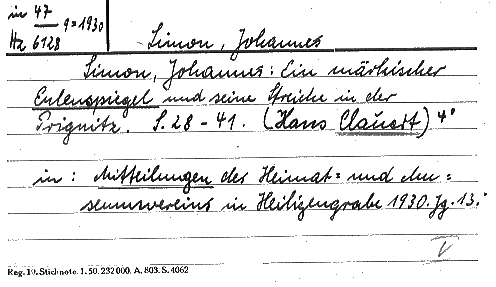 in 47
Hz 6128 9=1930
Simon, Johannes
Simon, Johannes: Ein märkischer
Eulenspiegel und seine Streiche in der
Prignitz. S. 28-41. (Hans Clauert) 4°
in: Mitteilungen des Heimat= und Mu=
seumsvereins in Heiligengrabe 1930. Jg. 13.
V
Reg. 19. Stichnote. 1. 50. 232000. A. 803. S. 4062